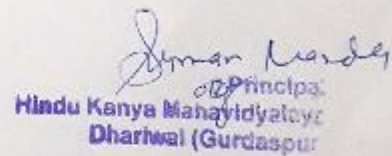 Suman Nanda
Principal
Hindu Kanya Mahavidyalaya
Dhariwal (Gurdaspur